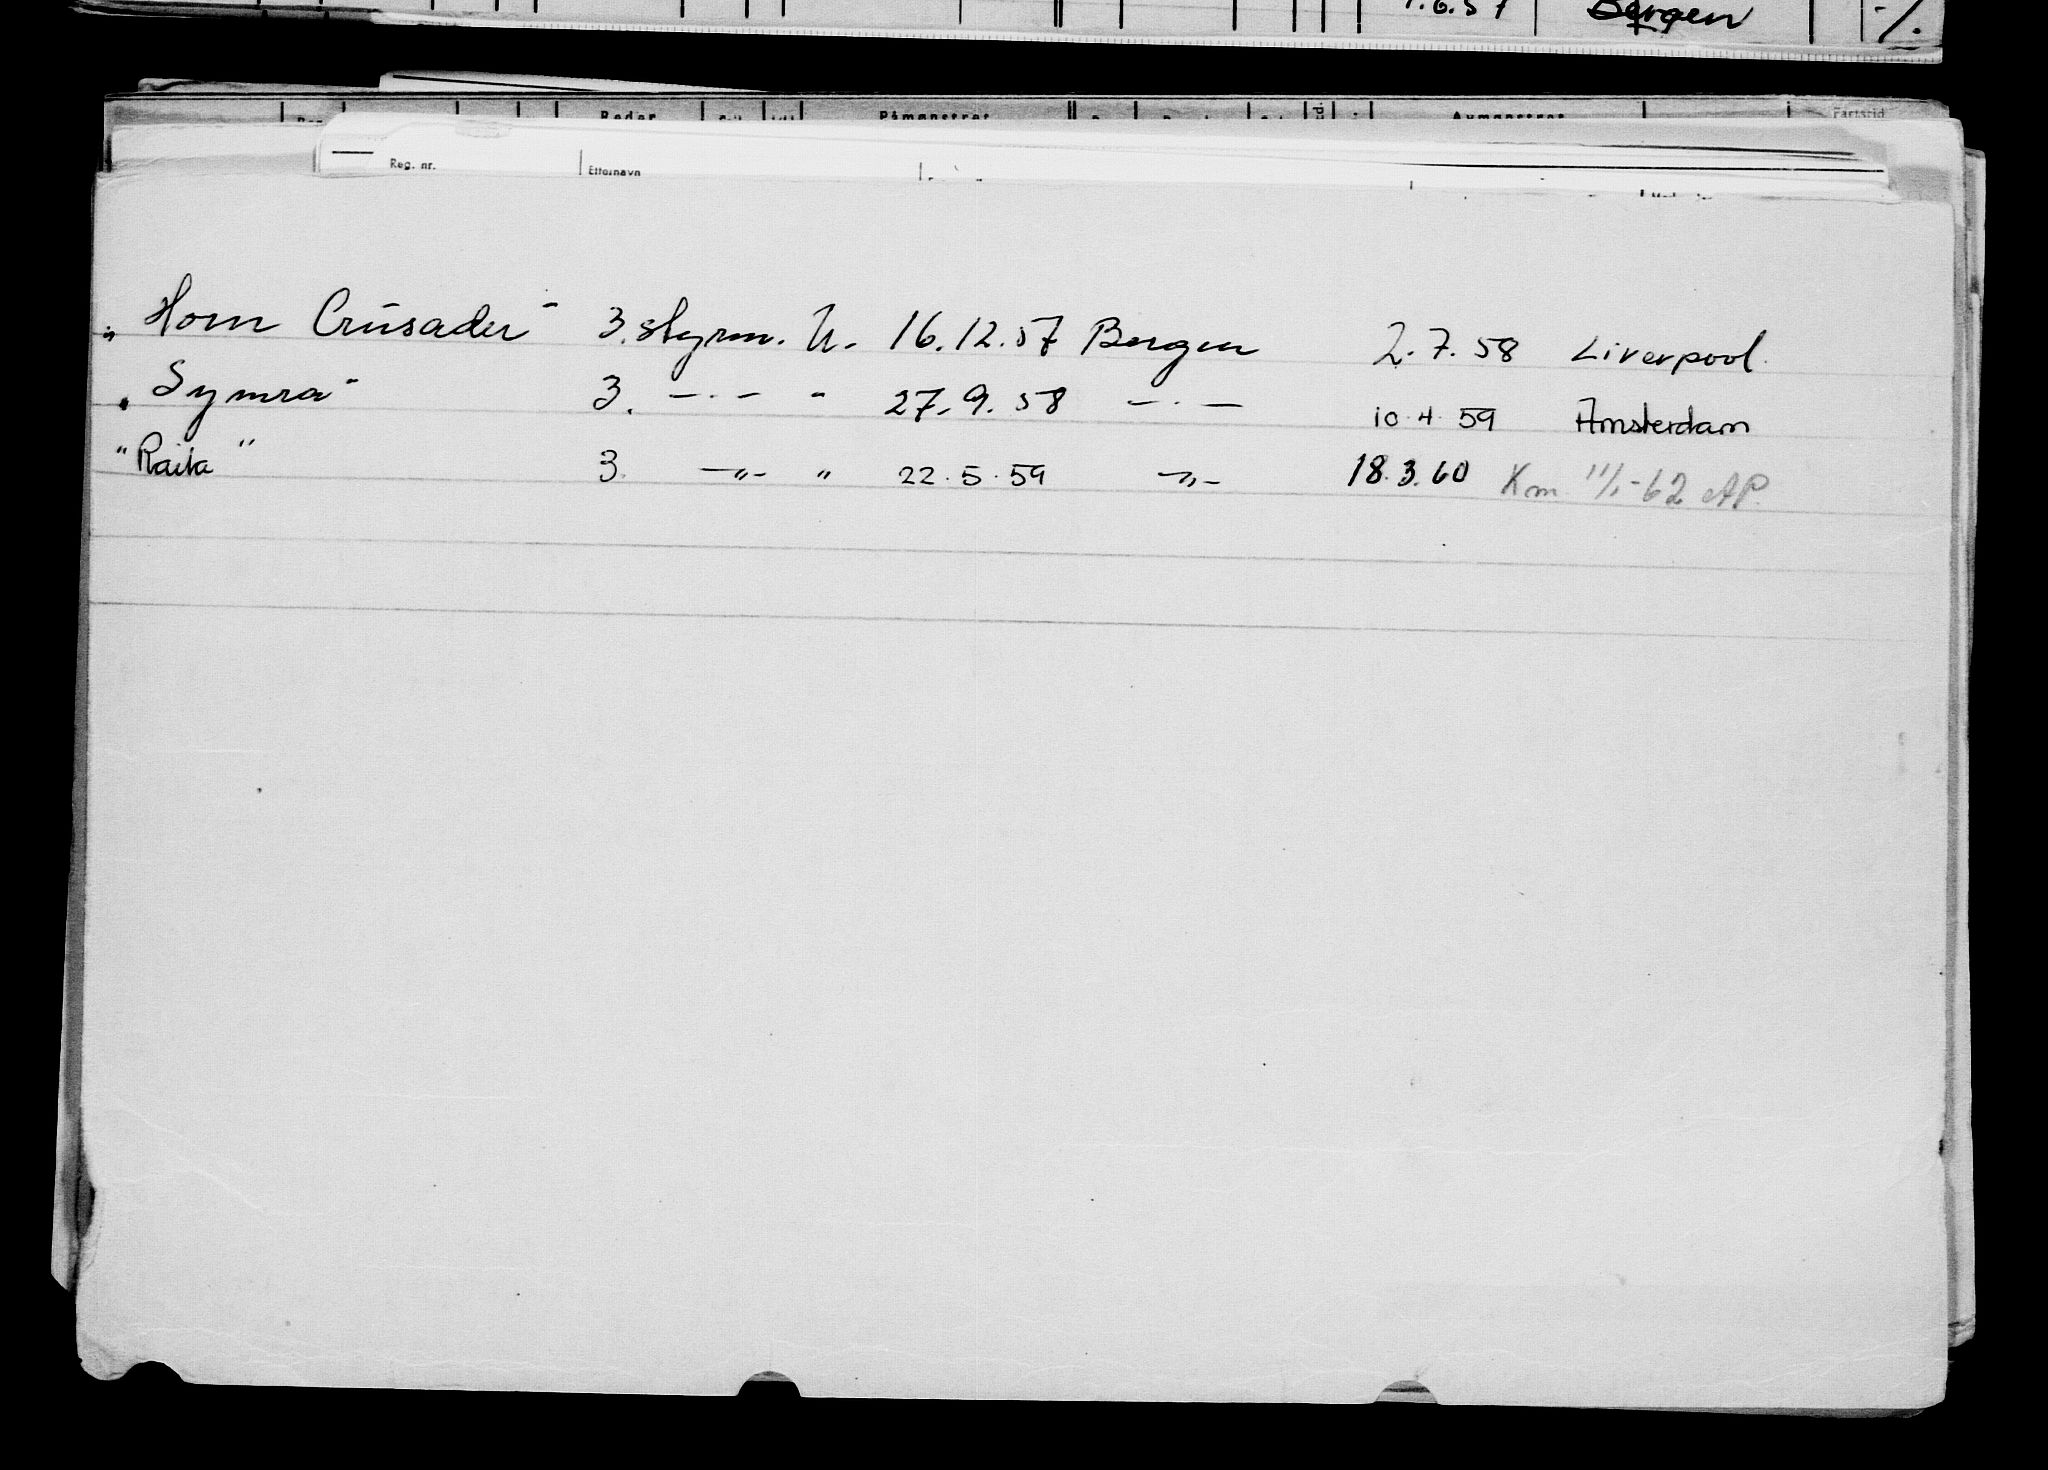 1.6.57 Bergen -/.
Reder Påmønstret Avmønstret Fartstid
Reg. nr. Etternavn
„Horn Crusader" 3. styrm. U. 16.12.57 Bergen 2.7.58 Liverpool.
„Symra" 3. —·— " 27.9.58 —·— 10.4.59 Amsterdam
"Raila" 3. —„— „ 22.5.59 —„— 18.3.60 Km 11/1-62 AP.